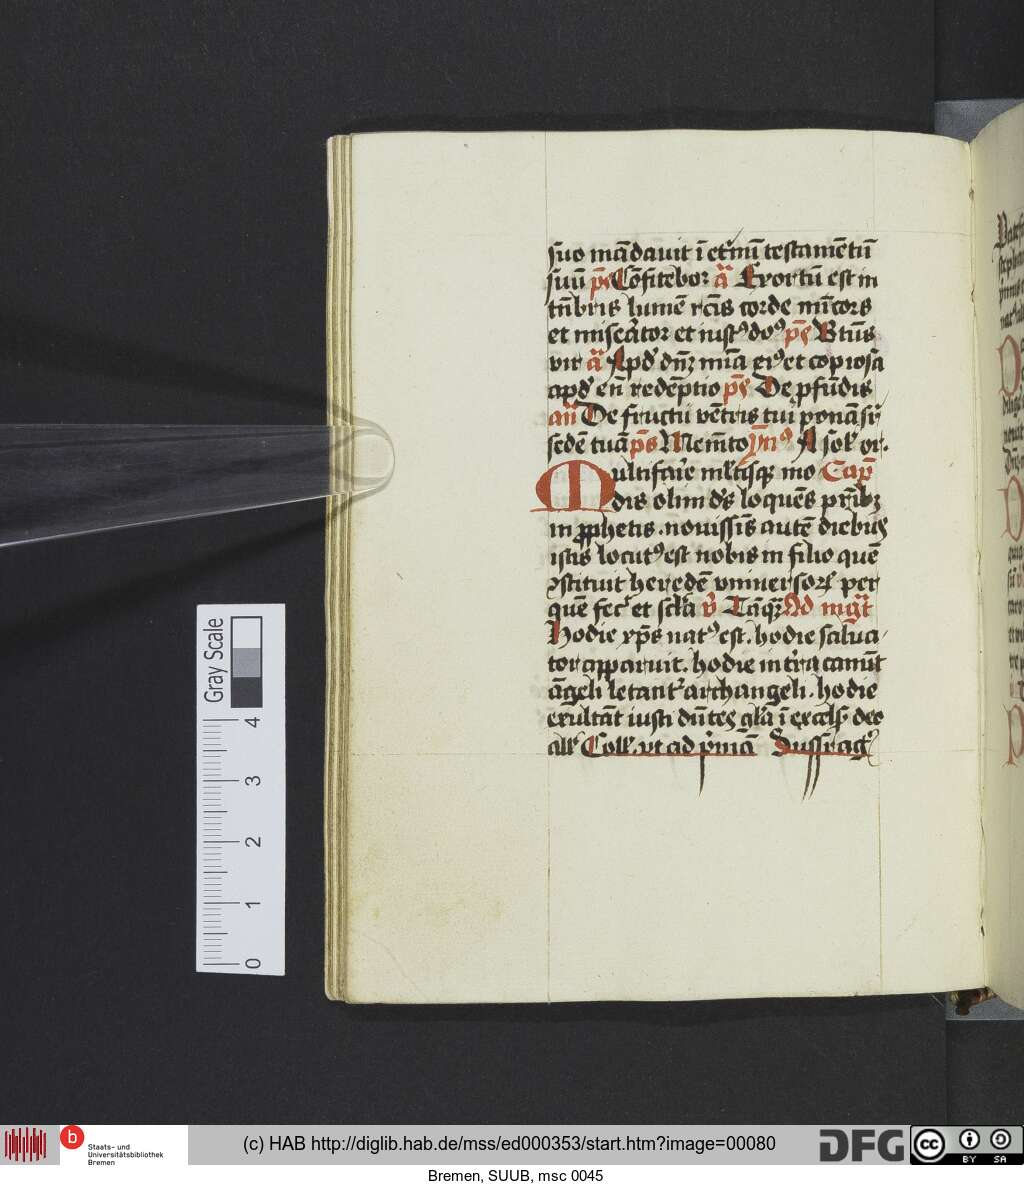 suo mādauit ī et̾nū testamētū
suū p̄s Cōfitebor ā Exortū est in
tn̄bris lumē rc̄is corde mīcors
et mise͛ator et iustꝰ doꝰ p̄s Btūs
vir ā Apd̕ dn̄ꝫ mīa eiꝰ et copiosa
apd̕ eū redēptio p̄s De pfūdis
an̄ De fructu vētris tui ponā sr̄
sedē tuā p̄s Memēto ymꝰ A sol̕ or.
Multifarie ml̕tisqꝫ mo Cap̄
dis olim dꝰs loquēs pr̄ibꝫ
in ꝓphetis . nouissīs autē diebꝰ
istis locutꝰ est nobis in filio quē
ꝯstituit heredē vniuersoꝝ per
quē fec̕ et scl̕a v̕ Tāqꝫ Ad mgt̄
Hodie xp̄s natꝰ est . hodie salua
tor apparuit . hodie in tr̄a canūt
āgeli letant᷑ archangeli . hodie
exultāt iusti dn̄tes gl̕a ī excels̕ deo
all̕ Coll̕ . vt ad p̕mā Suffrag̕
Gray Scale
0 1 2 3 4
b
Staats- und
Universitätsbibliothek
Bremen
(c) HAB http://diglib.hab.de/mss/ed000353/start.htm?image=00080
DFG
cc BY SA
Bremen, SUUB, msc 0045